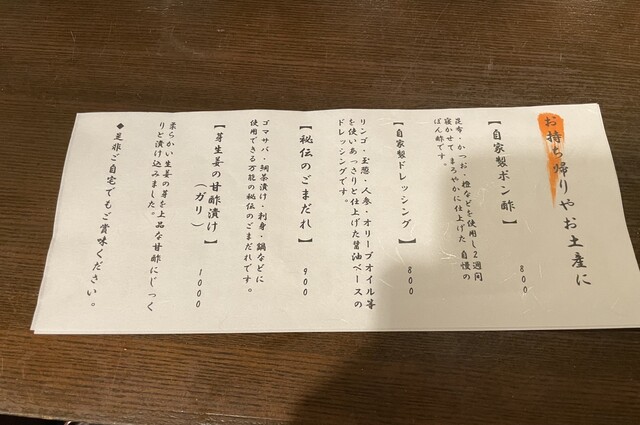 お持ち帰りやお土産に
【自家製ポン酢】 800
昆布・かつお・橙などを使用し2週間
寝かせて まろやかに仕上げた 自慢の
ぽん酢です。
【自家製ドレッシング】 800
リンゴ・玉葱・人参・オリーブオイル等
を使いあっさりと仕上げた醤油ベースの
ドレッシングです。
【秘伝のごまだれ】 900
ゴマサバ・鯛茶漬け・刺身・鍋などに
使用できる万能の秘伝のごまだれです。
【芽生姜の甘酢漬け
（ガリ）】 1000
柔らかい生姜の芽を上品な甘酢にじっく
りと漬け込みました。
◆是非ご自宅でもご賞味ください。